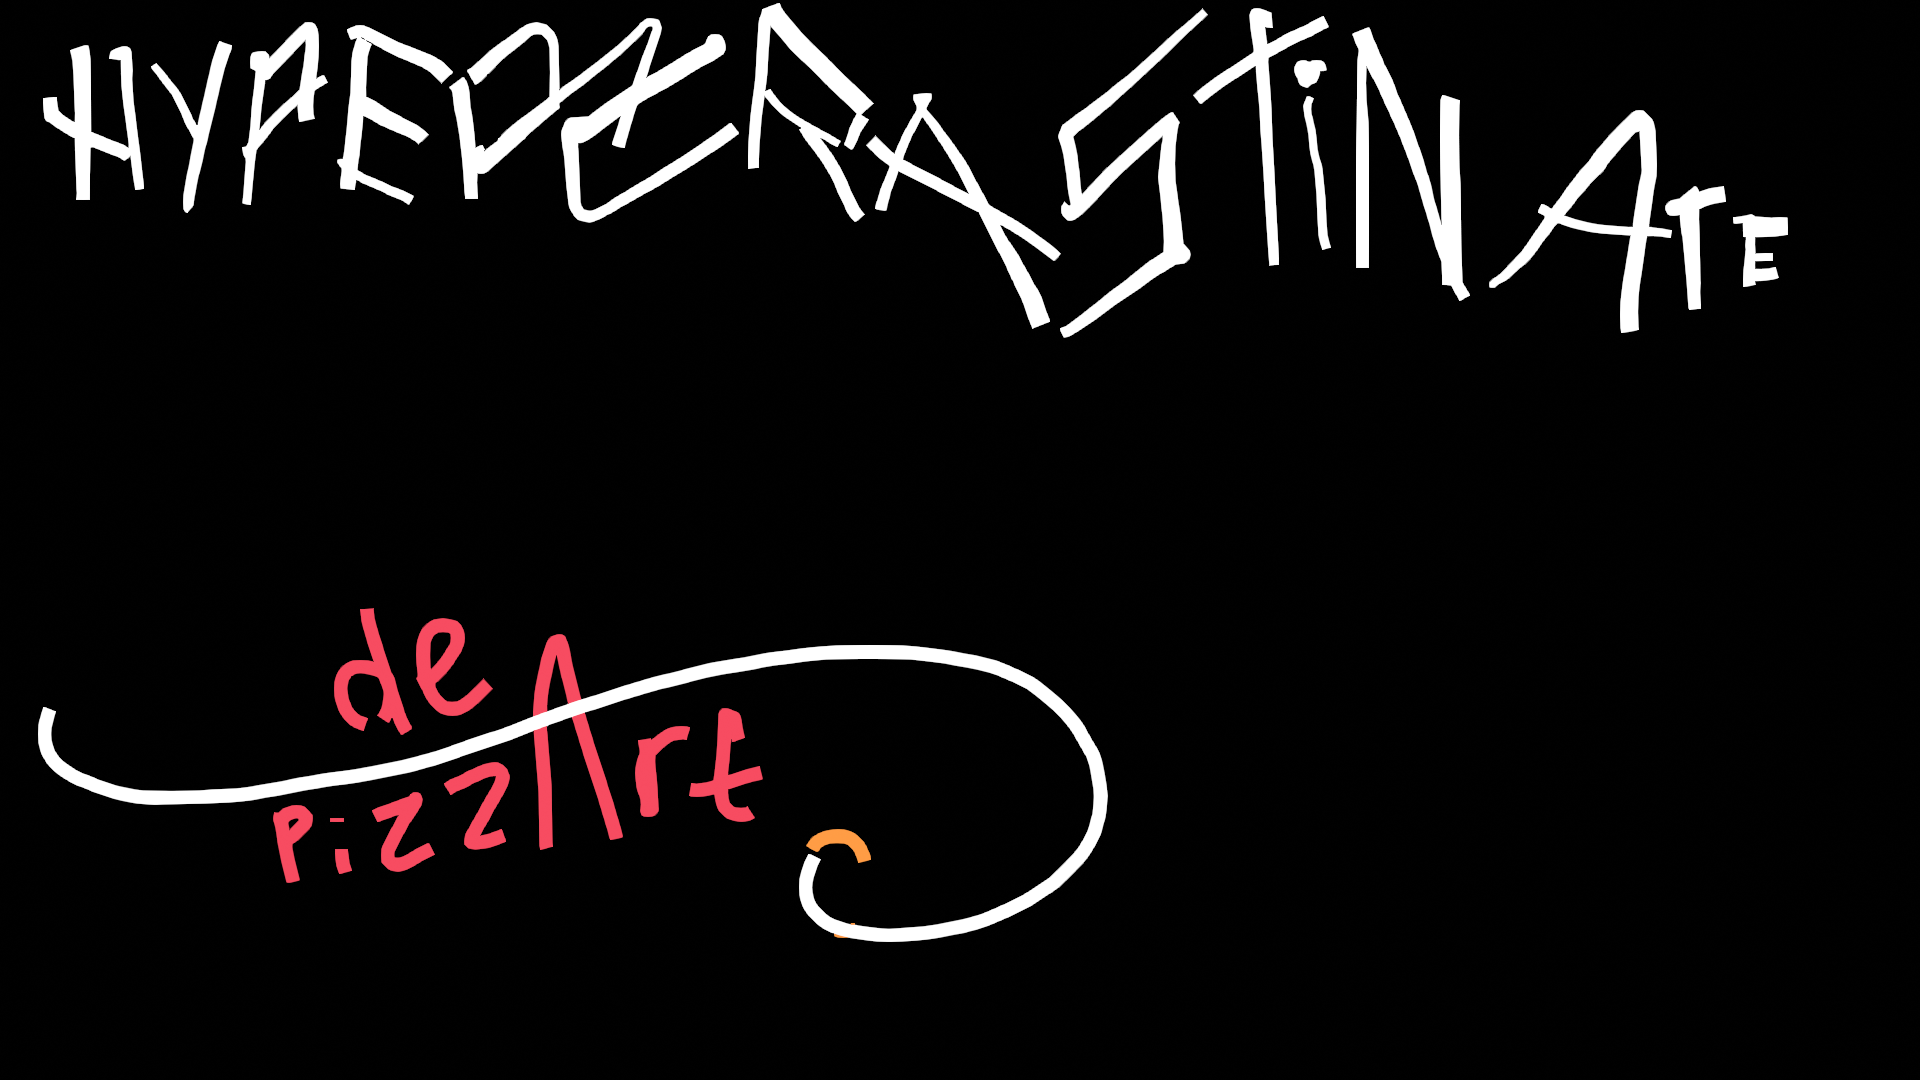 HYPERCRASTiNATE
de
PizzArt